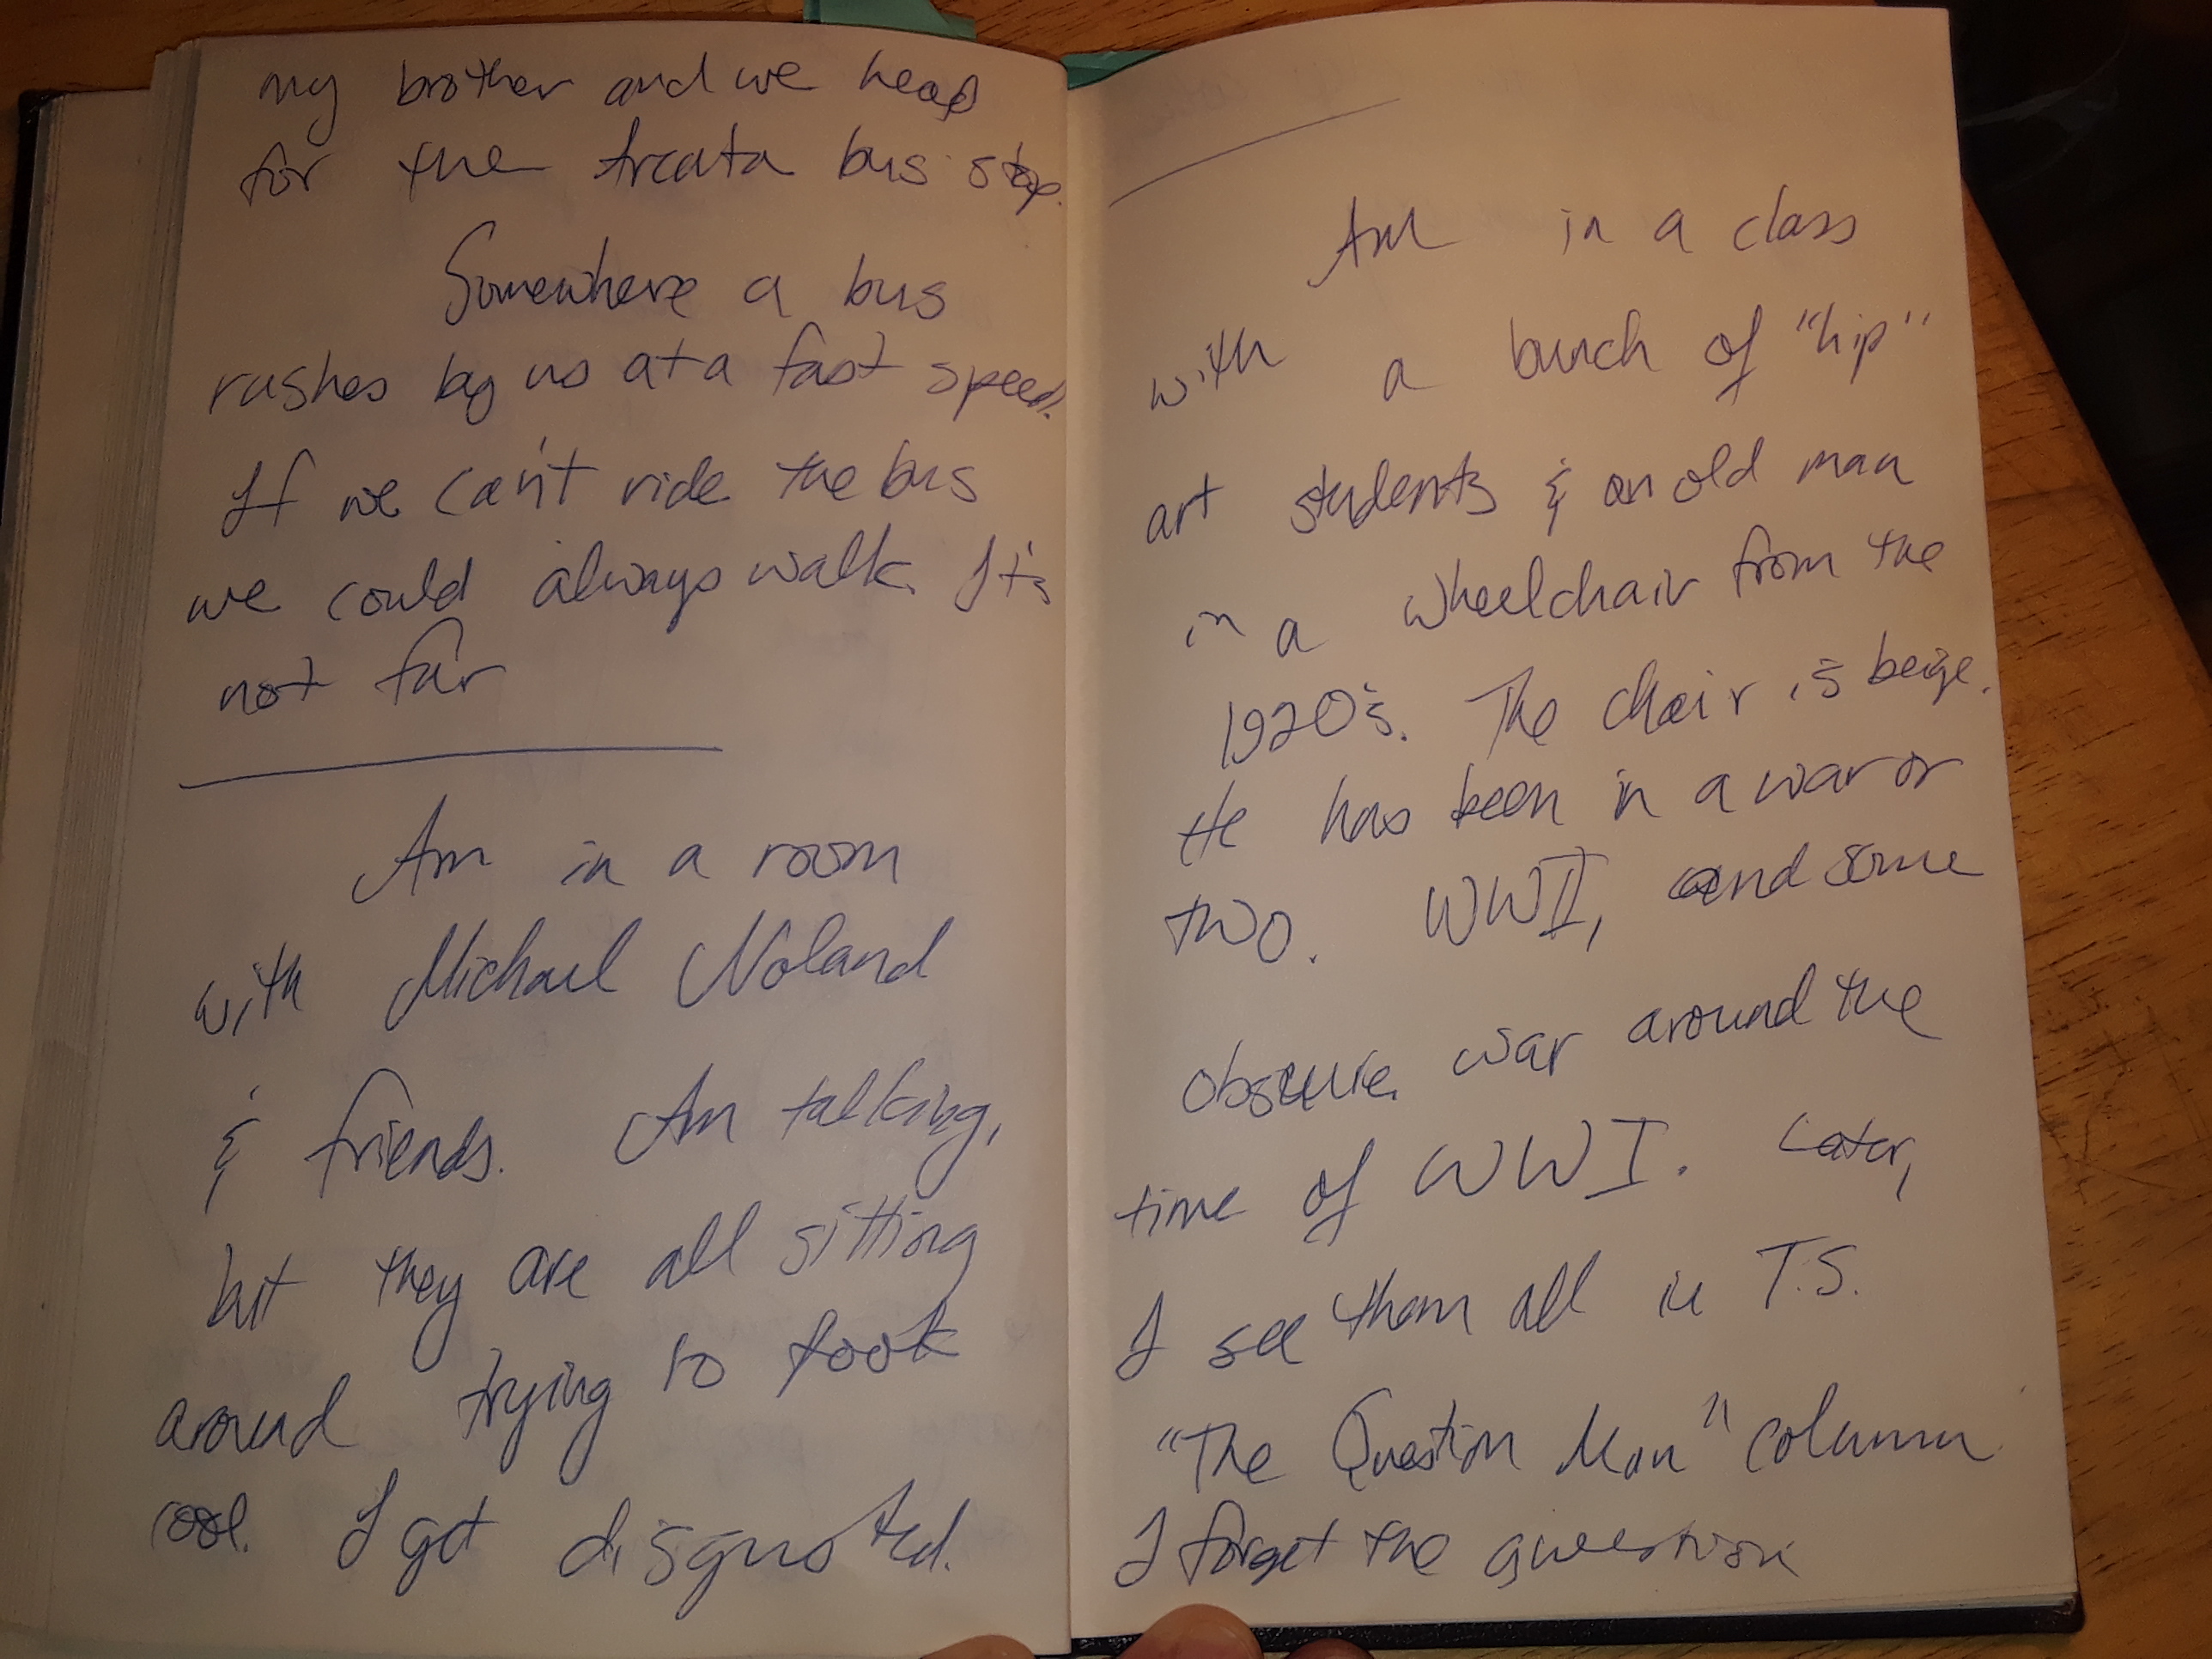 my brother and we head
for the Arcata bus stop.
Somewhere a bus
rushes by us at a fast speed.
If we can't ride the bus
we could always walk. It's
not far
Am in a room
with Michael Noland
& friends. Am talking,
but they are all sitting
around trying to look
cool. I got disgusted.
Am in a class
with a bunch of "hip"
art students & an old man
in a wheelchair from the
1920's. The chair is beige.
He has been in a war or
two. WWI, and some
obscure war around the
time of WWI. Later,
I see them all in T.S.
"The Question Man" column
I forget the question